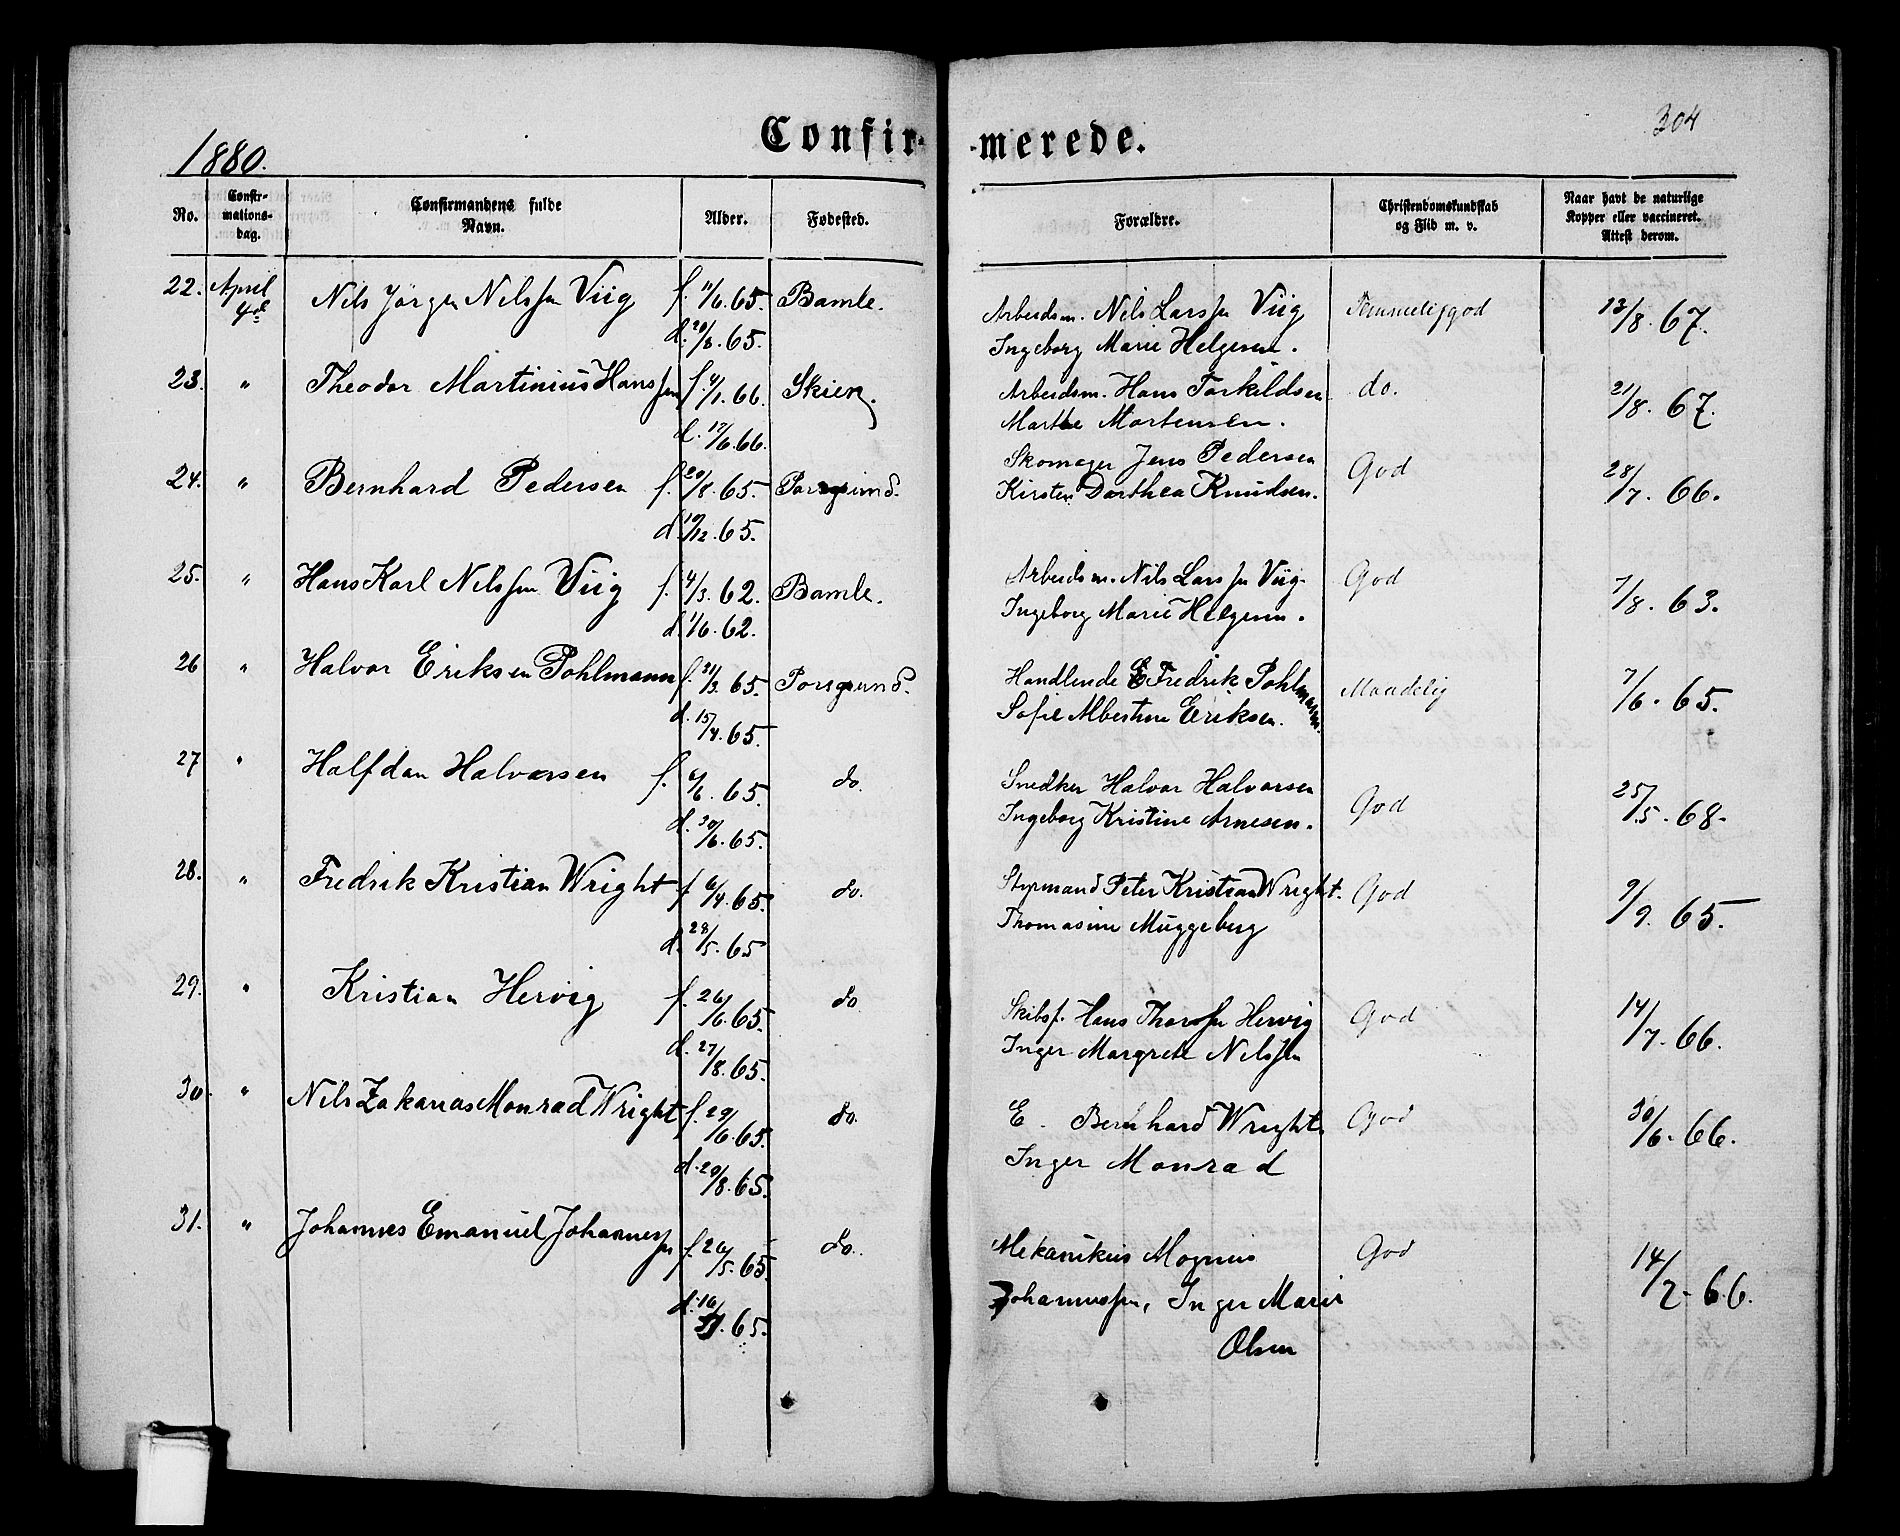 304
Confir- -merede.
1880.
No. Confir-mations-dag. Confirmandens fulde Navn. Alder. Fødested. Forældre. Christendomskundskab og Flid m. v. Naar havt de naturlige Kopper eller vaccineret. Attest derom.
22. April Nils Jörgen Nilssen Viig f. 11/6. 65. Bamle. Arbeidsm. Nils Larssen Viig Temmelig god 13/8. 67.
4de d. 20/8. 65. Ingeborg Marie Helgesen.
23. " Theodor Martinius Hanssen f. 4/1. 66. Skien. Arbeidsm. Hans Torkildsen do. 21/8. 67.
d. 17/6. 66. Marthe Mortensen.
24. " Bernhard Pedersen f. 20/8. 65. Porsgrund. Skomager Jens Pedersen God 28/7. 66.
d. 10/12. 65. Kirsten Dorthea Knudsen.
25. " Hans Karl Nilssen Viig f. 4/3. 62. Bamle. Arbeidsm. Nils Larssen Viig God 7/8. 63.
d. 1/6. 62. Ingeborg Marie Helgesen.
26 " Halvor Eriksen Pohlmann f. 21/3. 65. Porsgrund. Handlende E Fredrik Pohlmann Maadelig 7/6. 65.
d. 15/4. 65. Sofie Albertine Eriksen.
27 " Halfdan Halvorsen f. 6/6. 65. do. Snedker Halvor Halvorsen God 25/5. 68.
d. 30/6. 65. Ingeborg Kristine Arnesen.
28. " Fredrik Kristian Wright f. 6/4. 65. do. Styrmand Peter Kristian Wright. God 9/9. 65.
d. 28/5. 65 Thomasine Muggeberg
29. " Kristian Hervig f. 26/6. 65. do Skibsf. Hans Thorssen Hervig God 14/7. 66.
d. 27/8. 65. Inger Margrete Nilssen
30. " Nils Zakarias Monrad Wright f. 29/6. 65. do. E. Bernhard Wright. God 30/6. 66.
d. 20/8. 65. Inger Monrad
31. " Johannes Emanuel Johannessen f. 26/5. 65. do. Mekanikus Magnus God 14/2. 66.
d. 16/7. 65. Johannessen, Inger Marie
Olsen